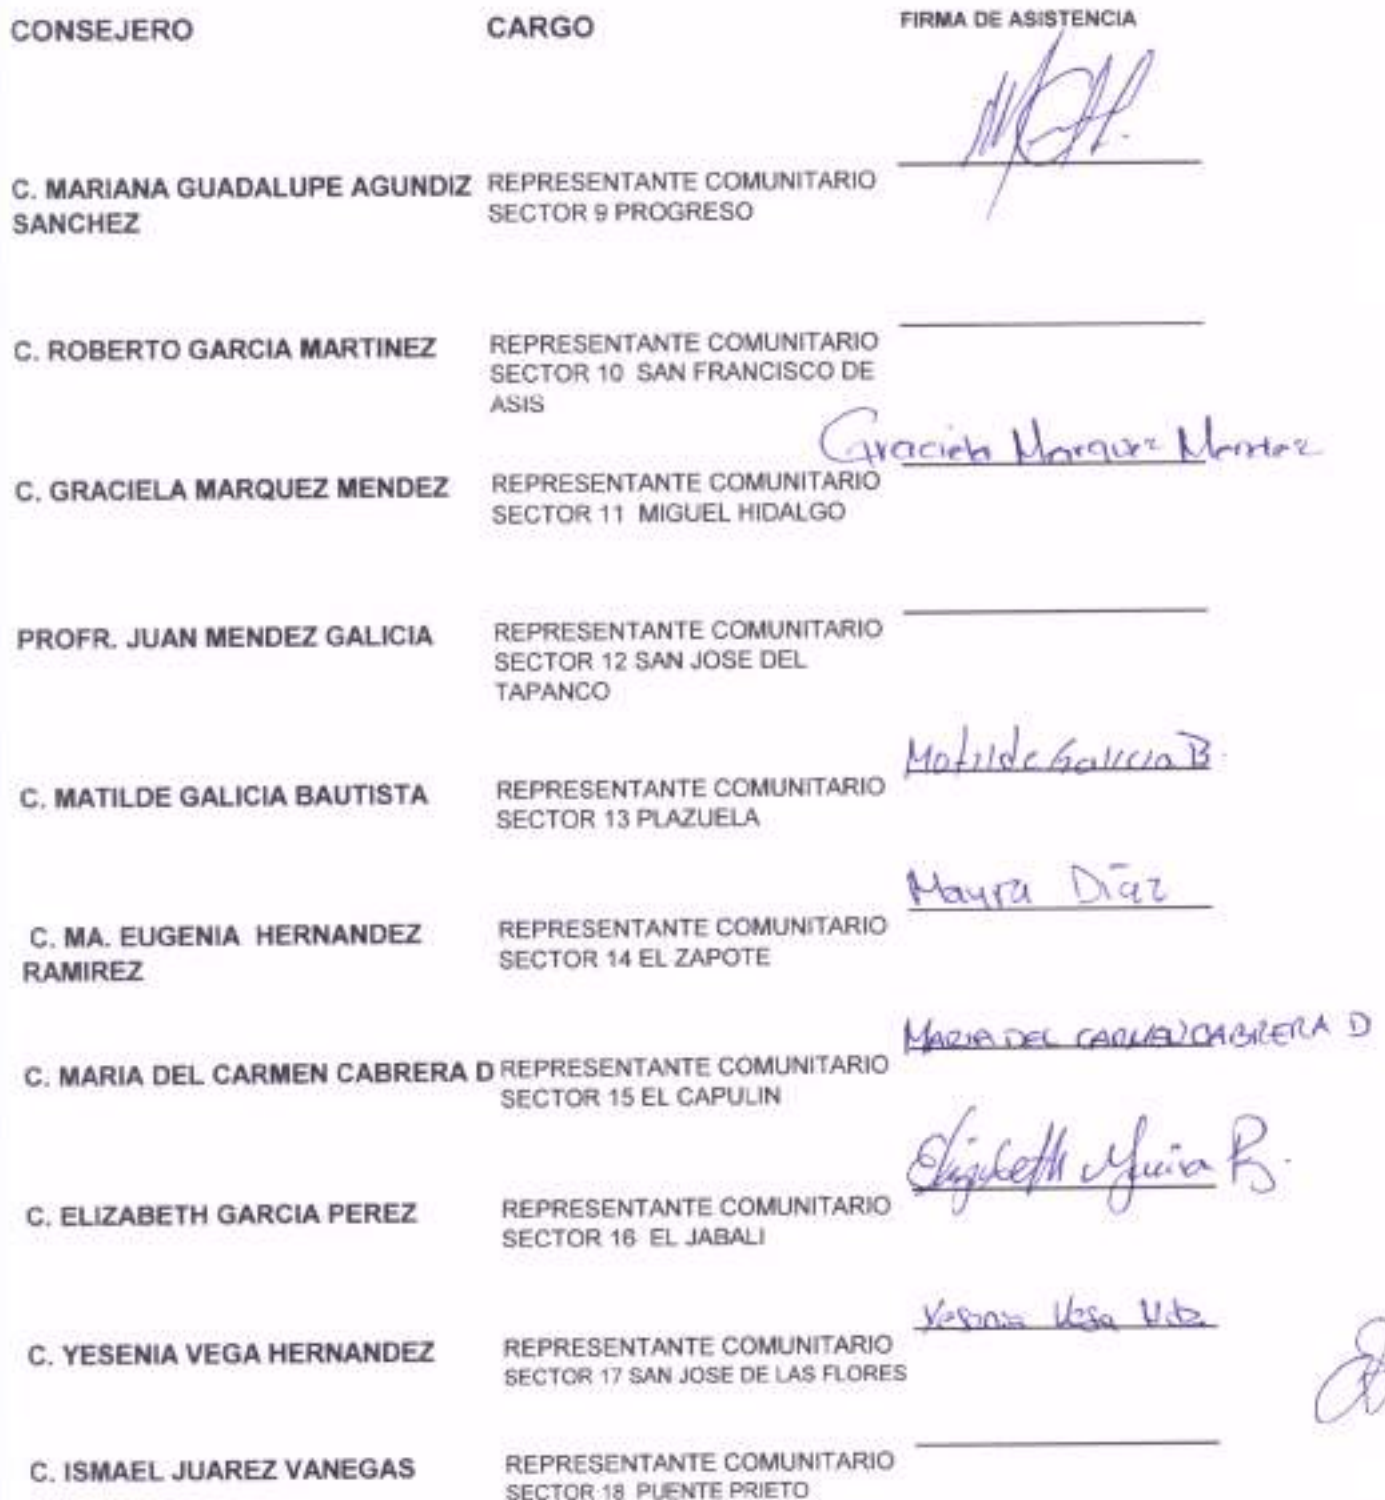 CONSEJERO CARGO FIRMA DE ASISTENCIA
C. MARIANA GUADALUPE AGUNDIZ REPRESENTANTE COMUNITARIO
SANCHEZ SECTOR 9 PROGRESO
C. ROBERTO GARCIA MARTINEZ REPRESENTANTE COMUNITARIO
SECTOR 10 SAN FRANCISCO DE
ASIS
Graciela Marquez Mendez
C. GRACIELA MARQUEZ MENDEZ REPRESENTANTE COMUNITARIO
SECTOR 11 MIGUEL HIDALGO
PROFR. JUAN MENDEZ GALICIA REPRESENTANTE COMUNITARIO
SECTOR 12 SAN JOSE DEL
TAPANCO
Matilde Galicia B.
C. MATILDE GALICIA BAUTISTA REPRESENTANTE COMUNITARIO
SECTOR 13 PLAZUELA
Mayra Díaz
C. MA. EUGENIA HERNANDEZ REPRESENTANTE COMUNITARIO
RAMIREZ SECTOR 14 EL ZAPOTE
MARIA DEL CARMEN CABRERA D
C. MARIA DEL CARMEN CABRERA D REPRESENTANTE COMUNITARIO
SECTOR 15 EL CAPULIN
Elizabeth P.
C. ELIZABETH GARCIA PEREZ REPRESENTANTE COMUNITARIO
SECTOR 16 EL JABALI
Yesenia Vega Hdz
C. YESENIA VEGA HERNANDEZ REPRESENTANTE COMUNITARIO
SECTOR 17 SAN JOSE DE LAS FLORES
C. ISMAEL JUAREZ VANEGAS REPRESENTANTE COMUNITARIO
SECTOR 18 PUENTE PRIETO